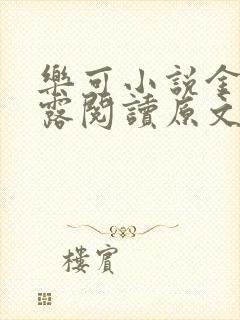 樂可小說金
露閱讀原文
樓賓